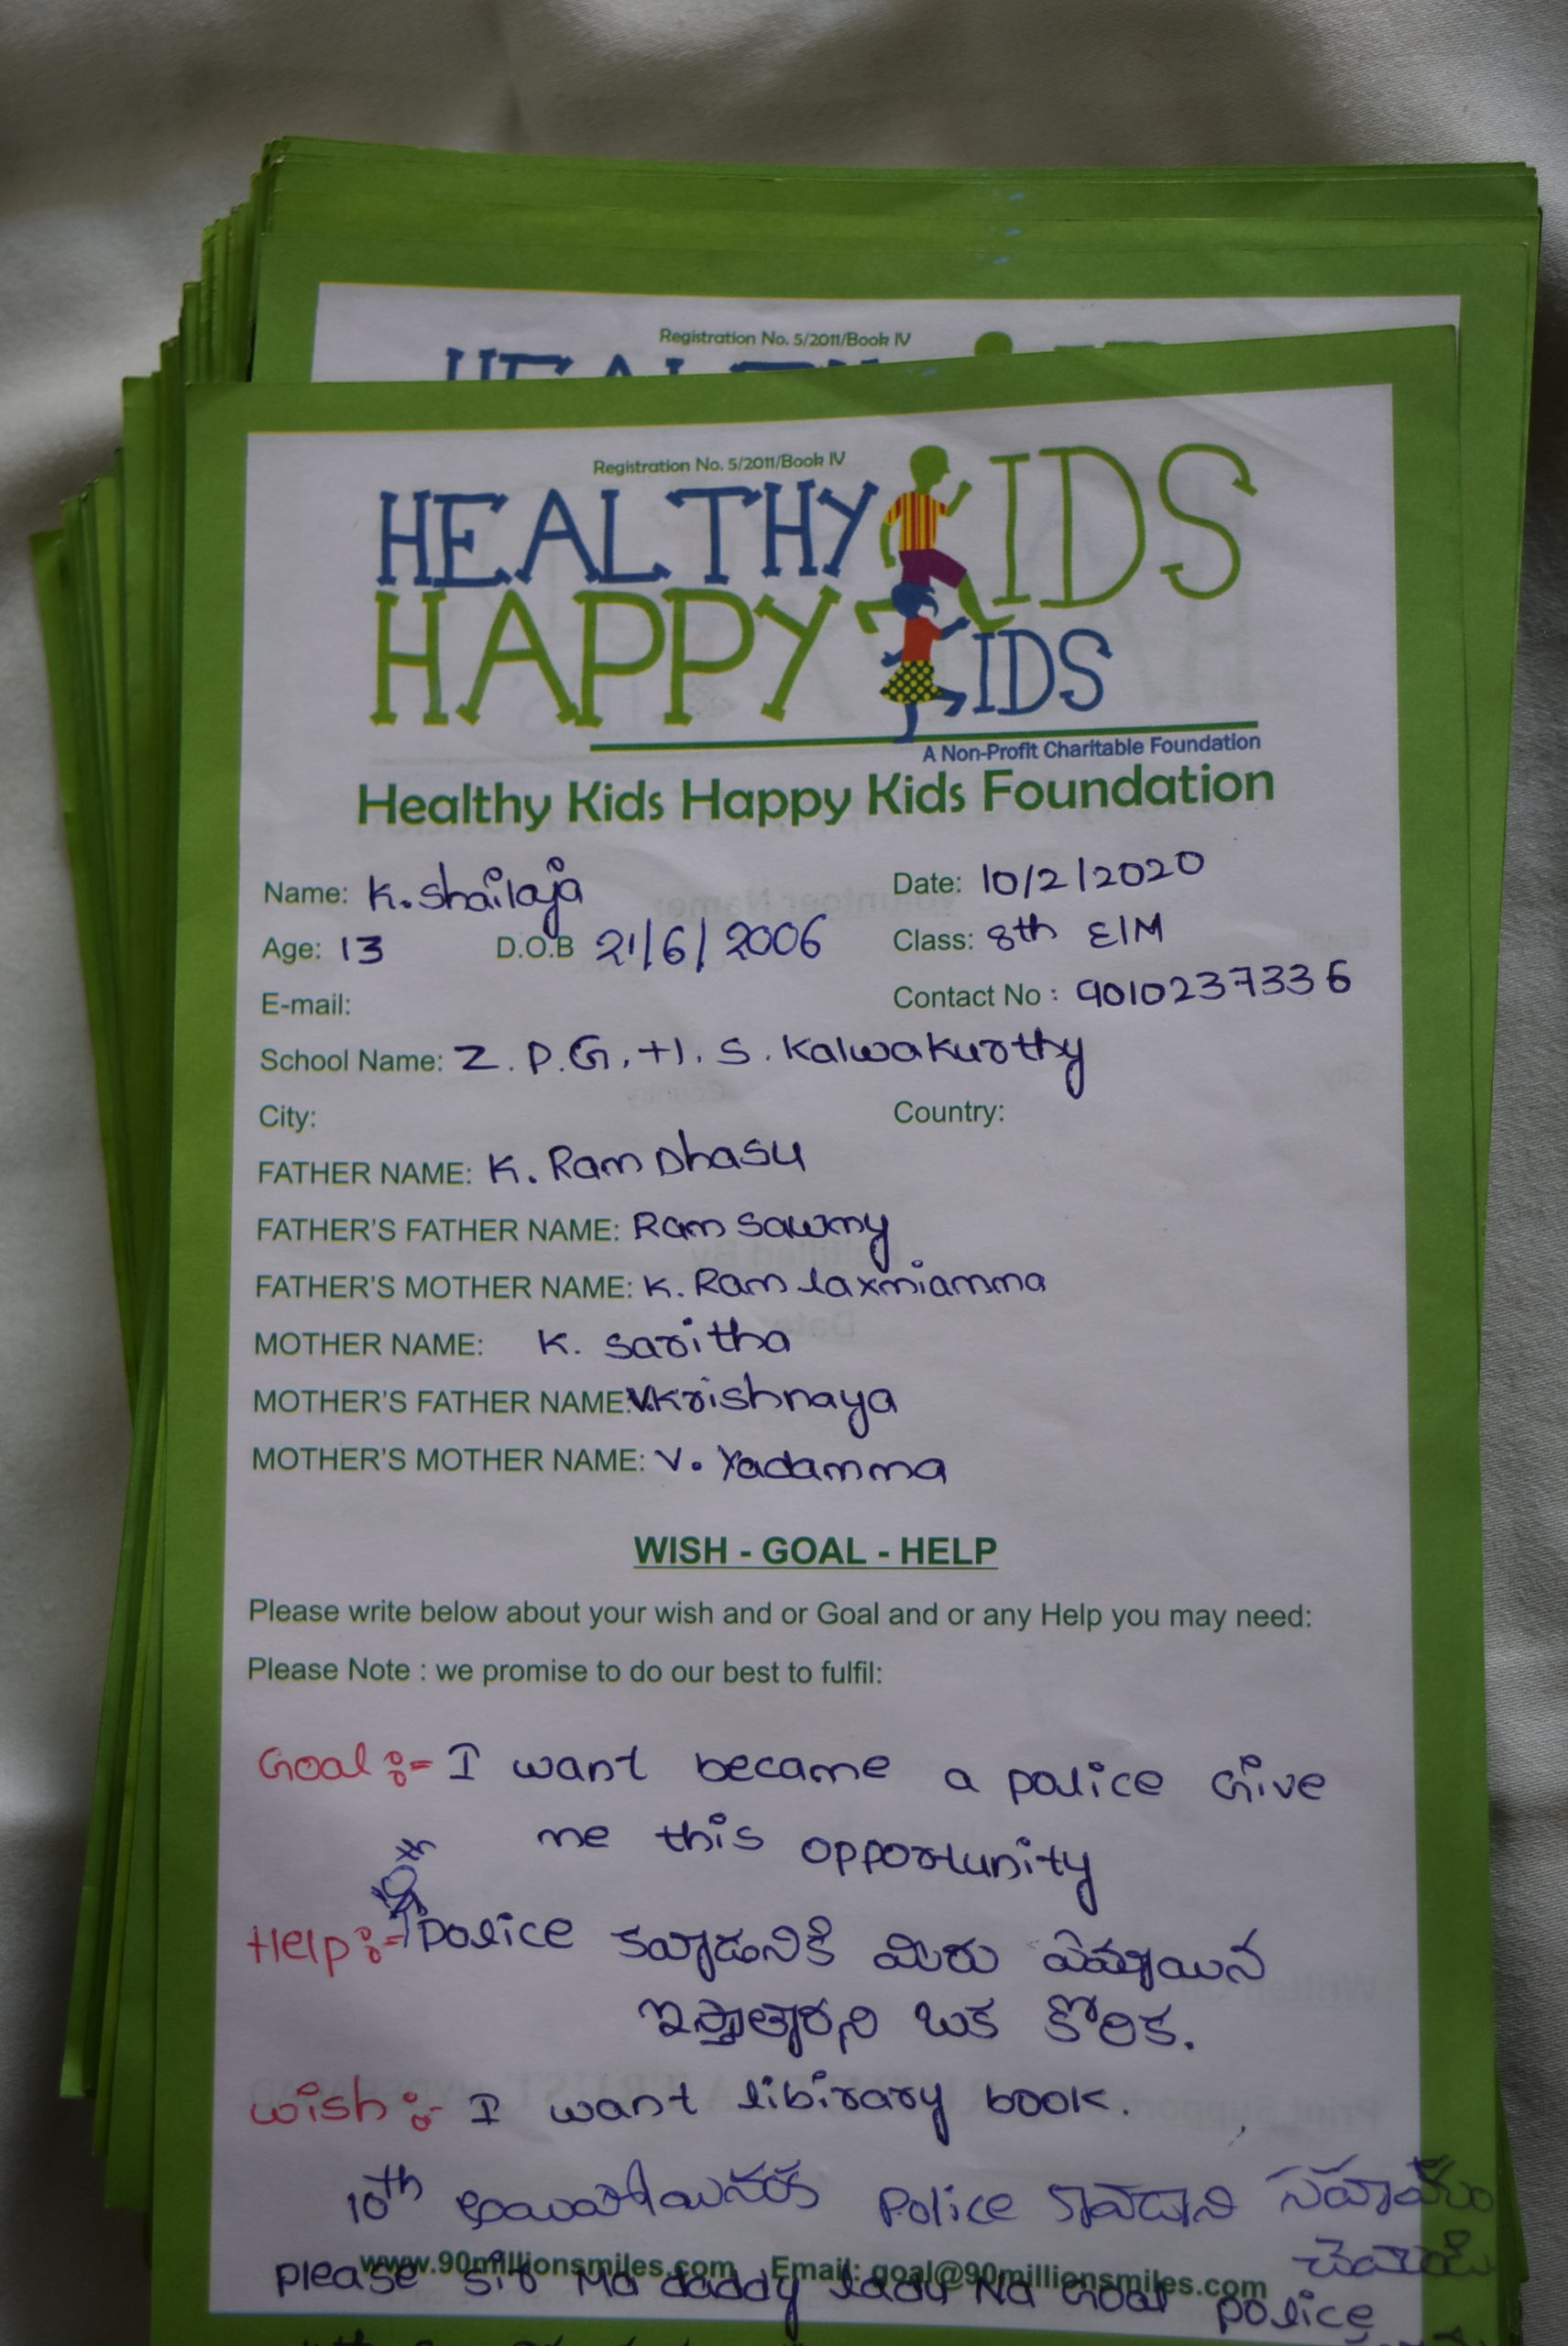 Registration No. 5/2011/Book IV
Registration No. 5/2011/Book IV
HEALTHY KIDS
HAPPY KIDS
A Non-Profit Charitable Foundation
Healthy Kids Happy Kids Foundation
Name: K. Shailaja Date: 10/2/2020
Age: 13 D.O.B 21/6/2006 Class: 8th E/M
E-mail: Contact No : 9010237336
School Name: Z. P. G. H. S. Kalwakurthy
City: Country:
FATHER NAME: K. Ram Dhasu
FATHER'S FATHER NAME: Ram Sawmy
FATHER'S MOTHER NAME: K. Ram laxmiamma
MOTHER NAME: K. Saritha
MOTHER'S FATHER NAME: V. Krishnaya
MOTHER'S MOTHER NAME: V. Yadamma
WISH - GOAL - HELP
Please write below about your wish and or Goal and or any Help you may need:
Please Note : we promise to do our best to fulfil:
Goal :- I want became a police Give
me this opportunity
Help :- police మీరు
ఒక కోరిక.
Wish :- I want libirary book.
10th Police కావడాని సహాయం
www.90millionsmiles.com Email: goal@90millionsmiles.com
please sir Ma daddy ladu Na Goal police